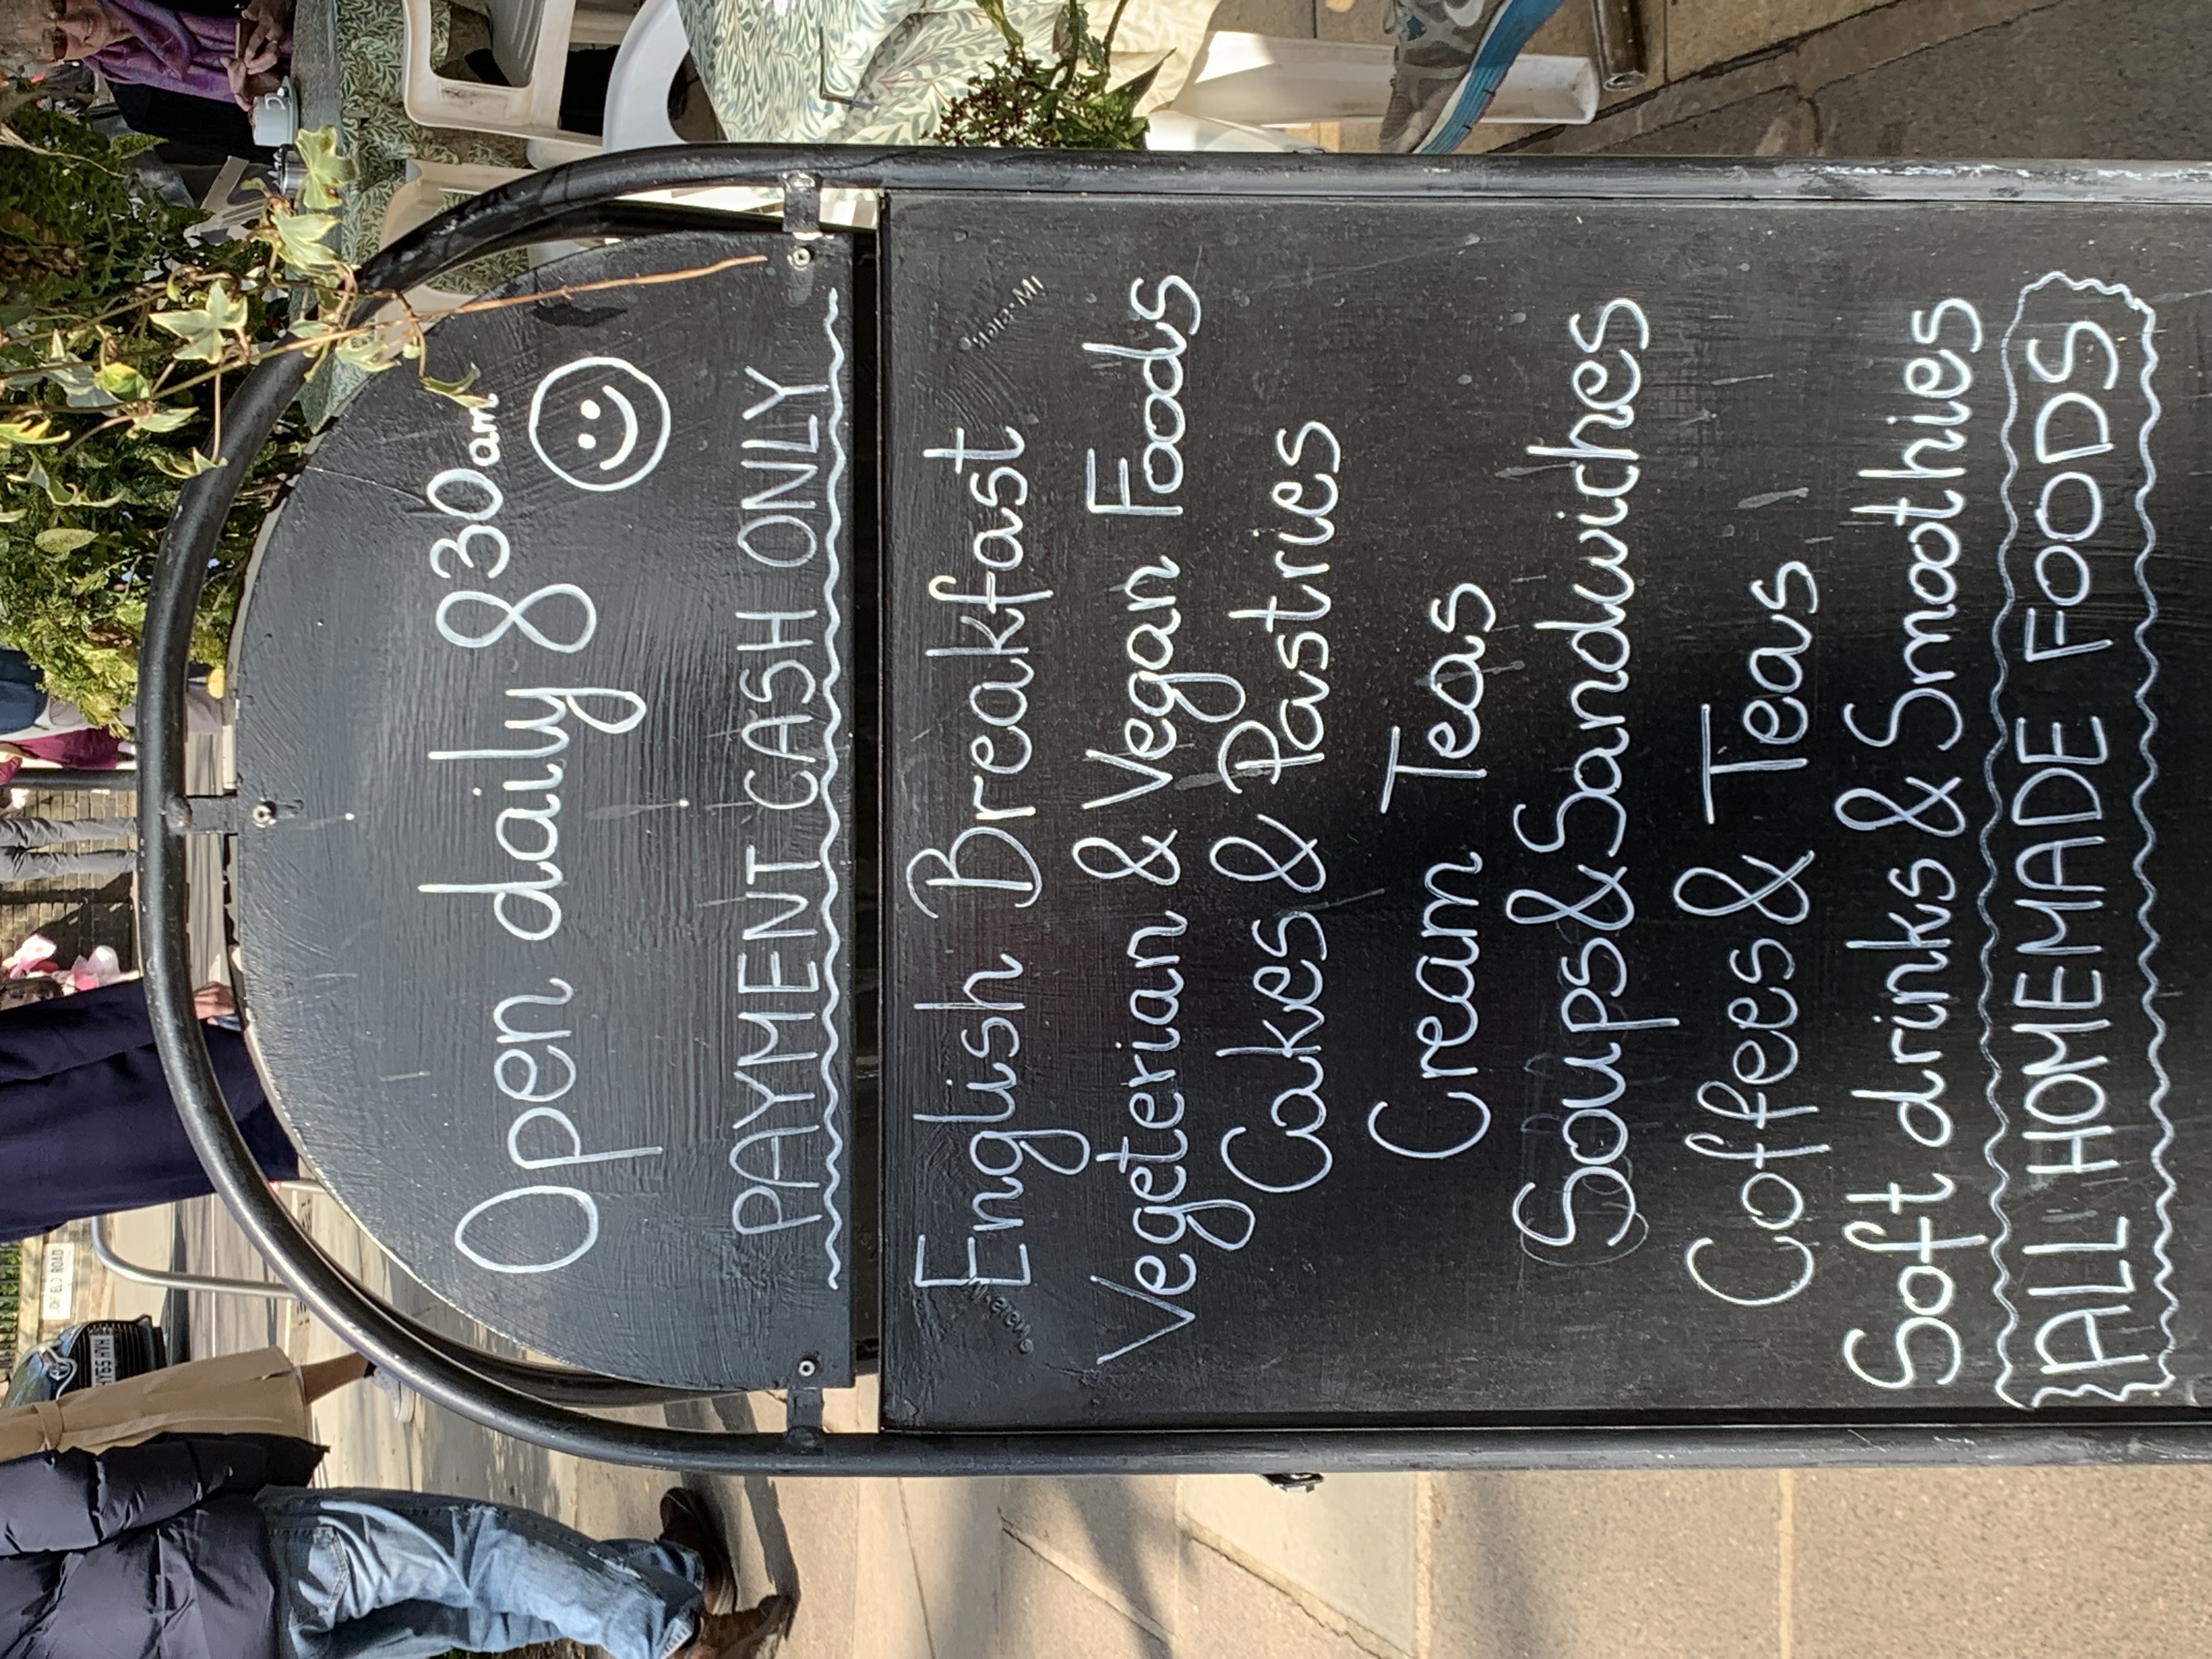 Open daily 8³⁰am
PAYMENT CASH ONLY
English Breakfast
Vegeterian & Vegan Foods
Cakes & Pastries
Cream Teas
Soups & Sandwiches
Coffees & Teas
Soft drinks & Smoothies
ALL HOMEMADE FOODS
ROAD